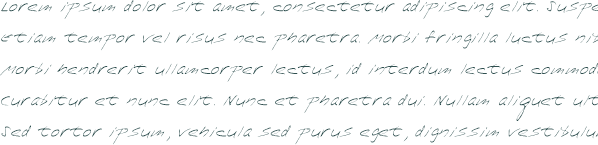 Lorem ipsum dolor sit amet, consectetur adipiscing elit. Suspe
Etiam tempor vel risus nec pharetra. Morbi fringilla luctus nis
Morbi hendrerit ullamcorper lectus, id interdum lectus commod
Curabitur et nunc elit. Nunc et pharetra dui. Nullam aliquet ult
Sed tortor ipsum, vehicula sed purus eget, dignissim vestibulu